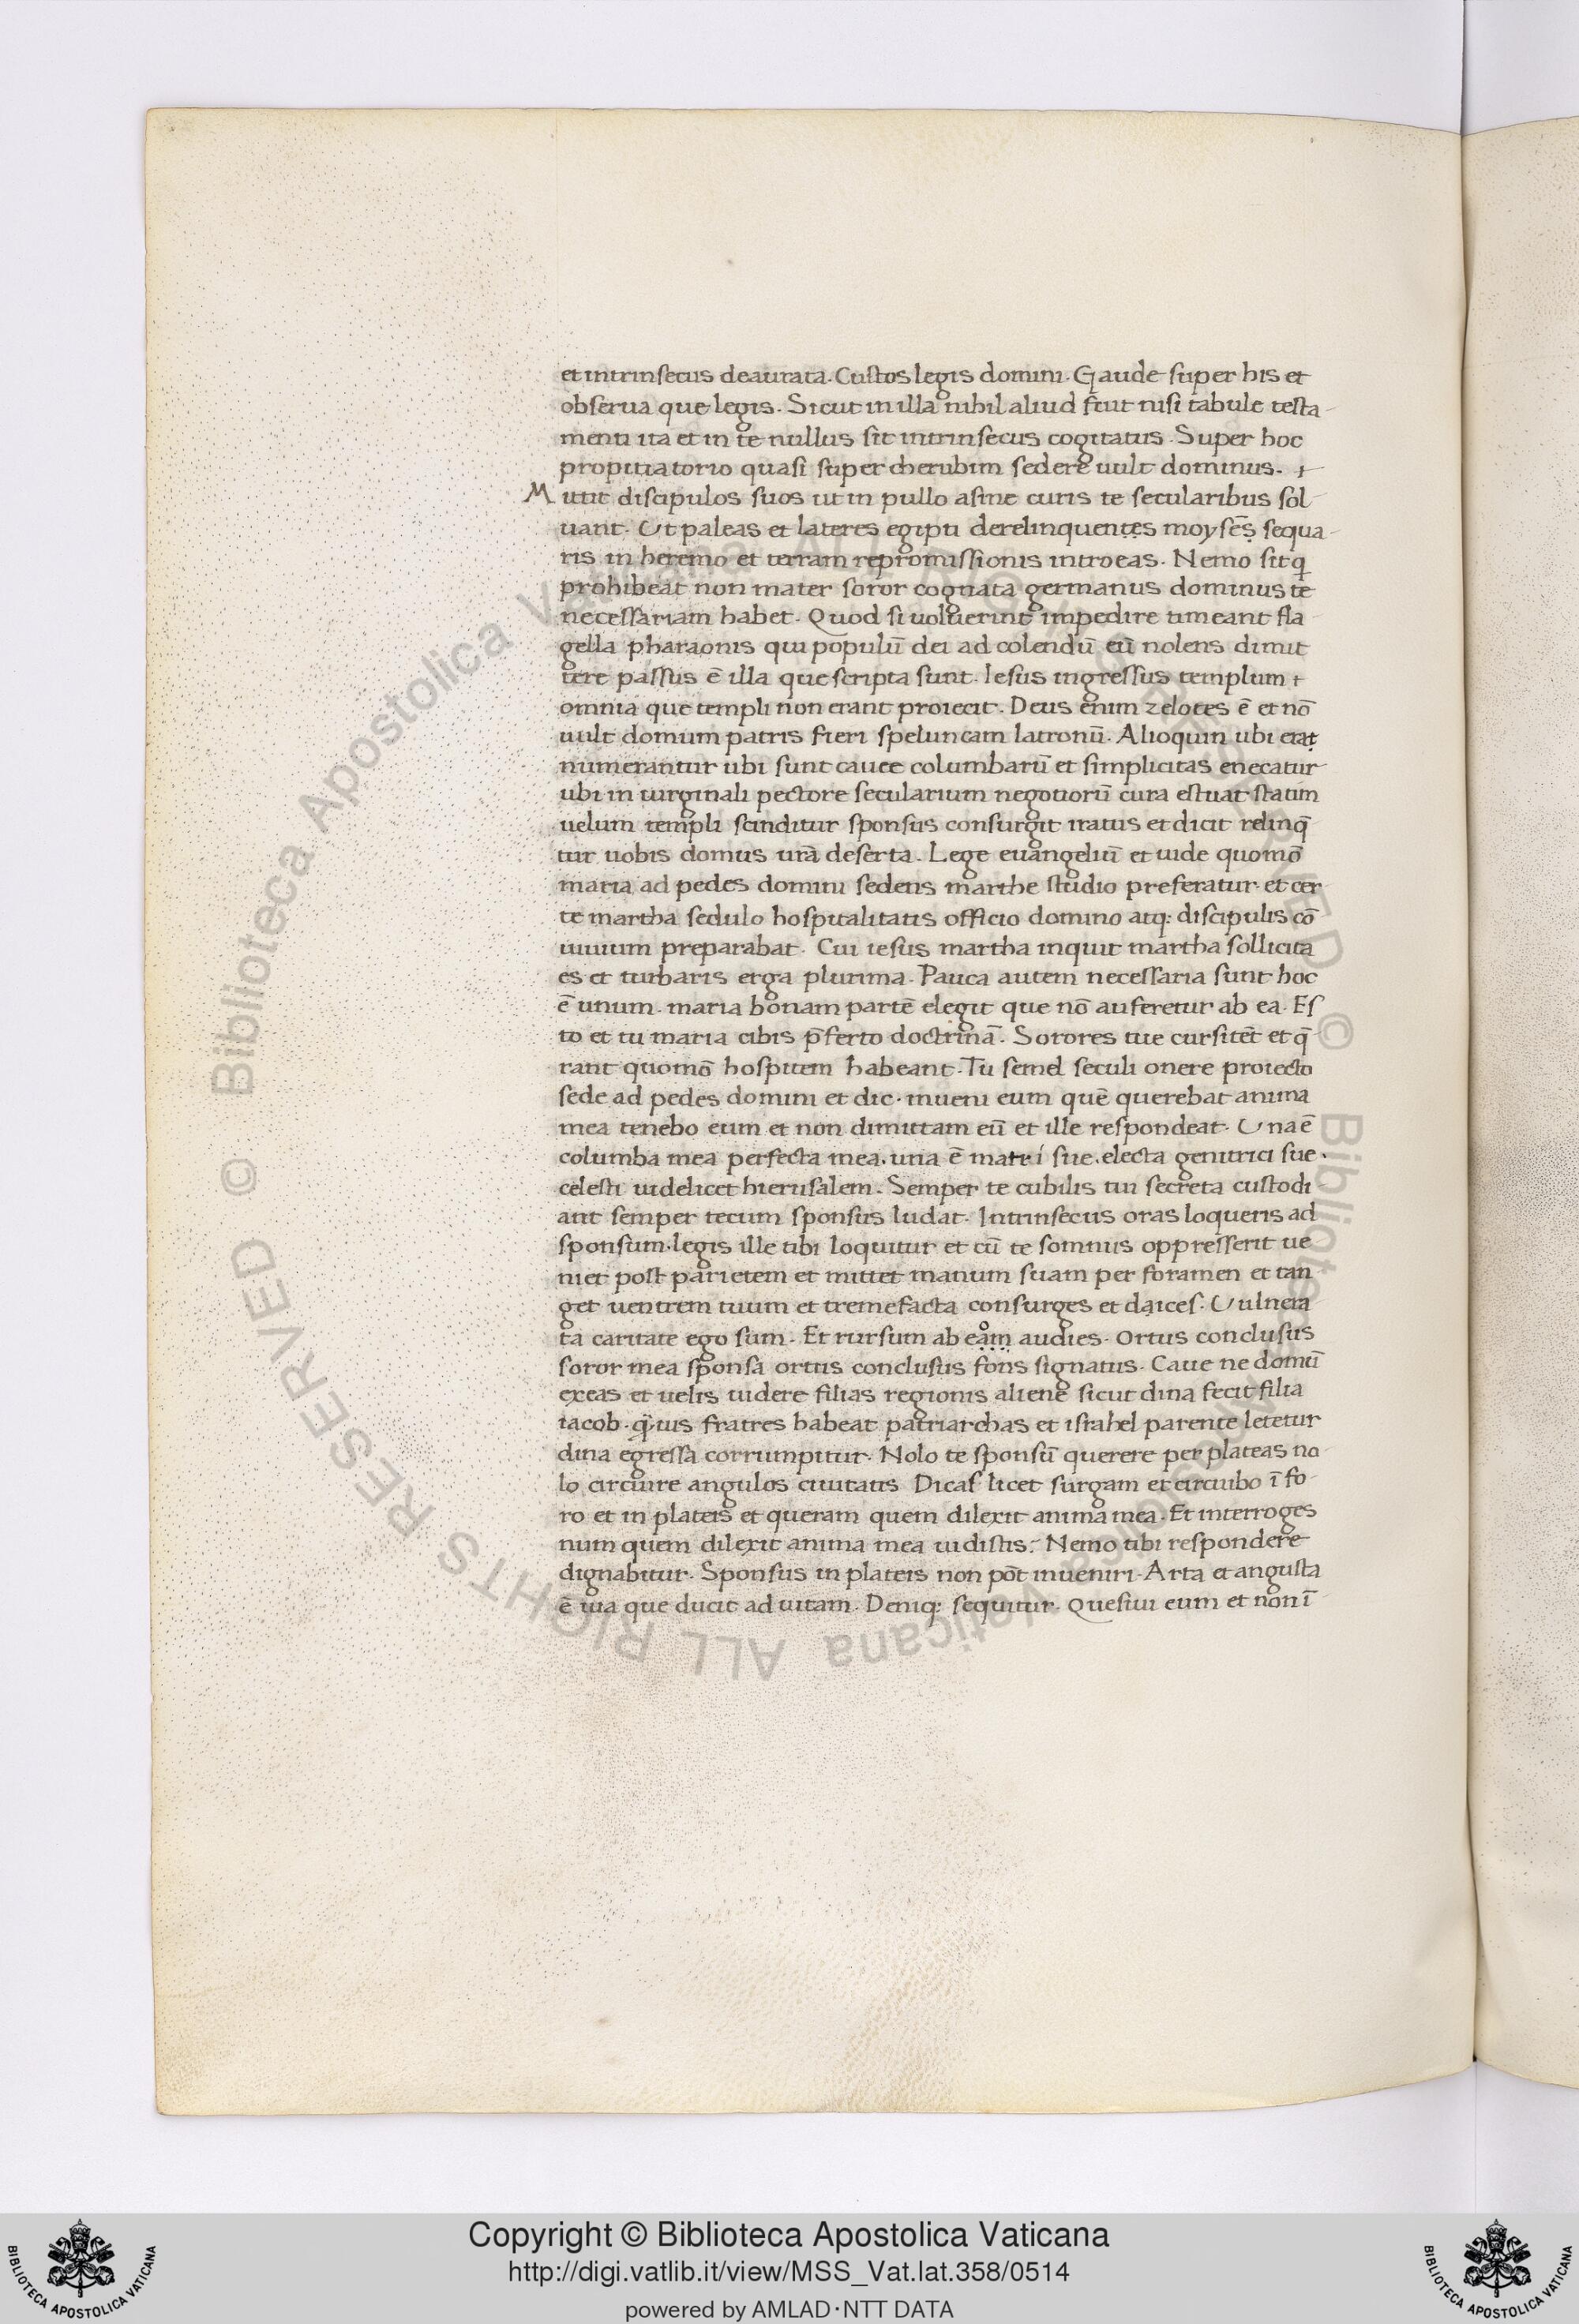 et intrinsecus deaurata. Custos legis domini. Gaude super his et
obserua que legis. Sicut in illa nihil aliud fuit nisi tabule testa-
menti ita et in te nullus sit intrinsecus cogitatus. Super hoc
propitiatorio quasi super cherubim sedere uult dominus.
Mittit discipulos suos ut in pullo asine curis te secularibus sol-
uant. Ut paleas et lateres egipti derelinquentes moysēs sequa-
ris in heremo et terram repromissionis introeas. Nemo sit q
prohibeat non mater soror cognata germanus dominus te
necessariam habet. Quod si uoluerint impedire timeant fla
gella pharaonis qui populū dei ad colendū eū nolens dimit
tere passus ē illa que scripta sunt. Iesus ingressus templum
omnia que templi non erant proiecit. Deus enim zelotes ē et nō
uult domum patris fieri speluncam latronū. Alioquin ubi erat
numerantur ubi sunt cauee columbarū et simplicitas enecatur
ubi in uirginali pectore secularium negotiorū cura estuat statim
uelum templi scinditur sponsus consurgit iratus et dicit relinq̄
tur uobis domus urā deserta. Lege euangeliū et uide quomō
maria ad pedes domini sedens marthe studio preferatur. et cer
te martha sedulo hospitalitatis officio domino atq: discipulis cō
uiuium preparabat. Cui iesus martha inquit martha sollicita
es et turbaris erga plurima. Pauca autem necessaria sunt hoc
ē unum. maria bonam partē elegit que nō auferetur ab ea. Es
to et tu maria cibis p̄ferto doctrinā. Sorores tue cursitēt et q̄
rant quomō hospitem habeant. Tu semel seculi onere proiecto
sede ad pedes domini et dic. inueni eum quē querebat anima
mea tenebo eum et non dimittam eū et ille respondeat. Una ē
columba mea perfecta mea. una ē matri sue. electa genitrici sue.
celesti uidelicet hierusalem. Semper te cubilis tui secreta custodi
ant semper tecum sponsus ludat. Intrinsecus oras loqueris ad
sponsum. legis ille tibi loquitur et cū te somnus oppresserit ue
niet post parietem et mittet manum suam per foramen et tan
get uentrem tuum et tremefacta consurges et daices. Uulnera
ta caritate ego sum. Et rursum ab eam audies. Ortus conclusus
soror mea sponsa ortus conclusus fons signatus. Caue ne domū
exeas et uelis uidere filias regionis aliene sicut dina fecit filia
iacob. q̄.uis fratres habeat patriarchas et israhel parente letetur
dina egressa corrumpitur. Nolo te sponsū querere per plateas no
lo circuire angulos ciuitatis Dicas licet surgam et circuibo ī fo-
ro et in plateis et queram quem dilexit anima mea. Et interroges
num quem dilexit anima mea uidistis: Nemo tibi respondere
dignabitur. Sponsus in plateis non pōt inueniri. Arta et angusta
ē uia que ducit ad uitam. Deniq: sequitur. Quesiui eum et non ī
Copyright © Biblioteca Apostolica Vaticana
http://digi.vatlib.it/view/MSS_Vat.lat.358/0514
powered by AMLAD·NTT DATA
BIBLIOTECA APOSTOLICA VATICANA
BIBLIOTECA APOSTOLICA VATICANA
© Biblioteca Apostolica Vaticana ALL RIGHTS RESERVED
© Biblioteca Apostolica Vaticana ALL RIGHTS RESERVED